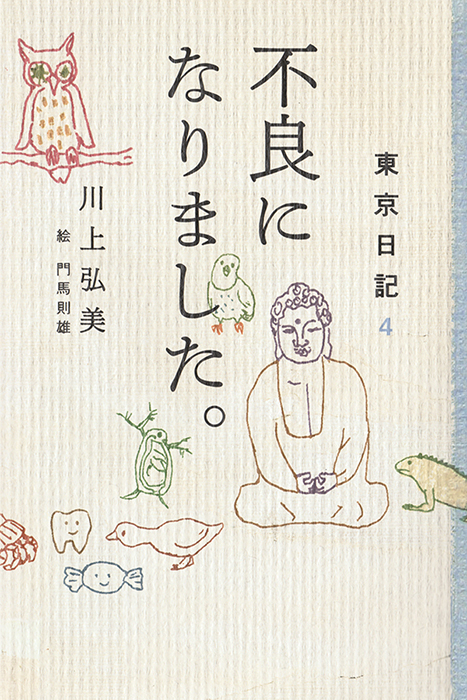 東京日記4
不良に
なりました。
川上弘美
絵 門馬則雄